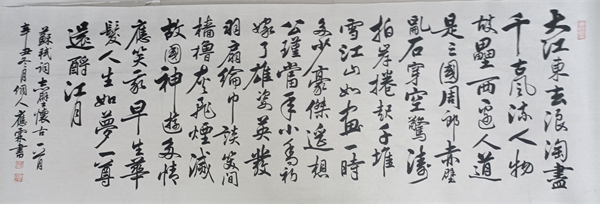 大江東去浪淘盡
千古風流人物
故壘西邊人道
是三國周郎赤壁
亂石穿空驚濤
拍岸捲起千堆
雪江山如畫一時
多少豪傑遙想
公瑾當年小喬初
嫁了雄姿英發
羽扇綸巾談笑間
檣櫓灰飛煙滅
故國神游多情
應笑我早生華
髮人生如夢一尊
還酹江月
蘇軾詞赤壁懷古
辛丑冬月